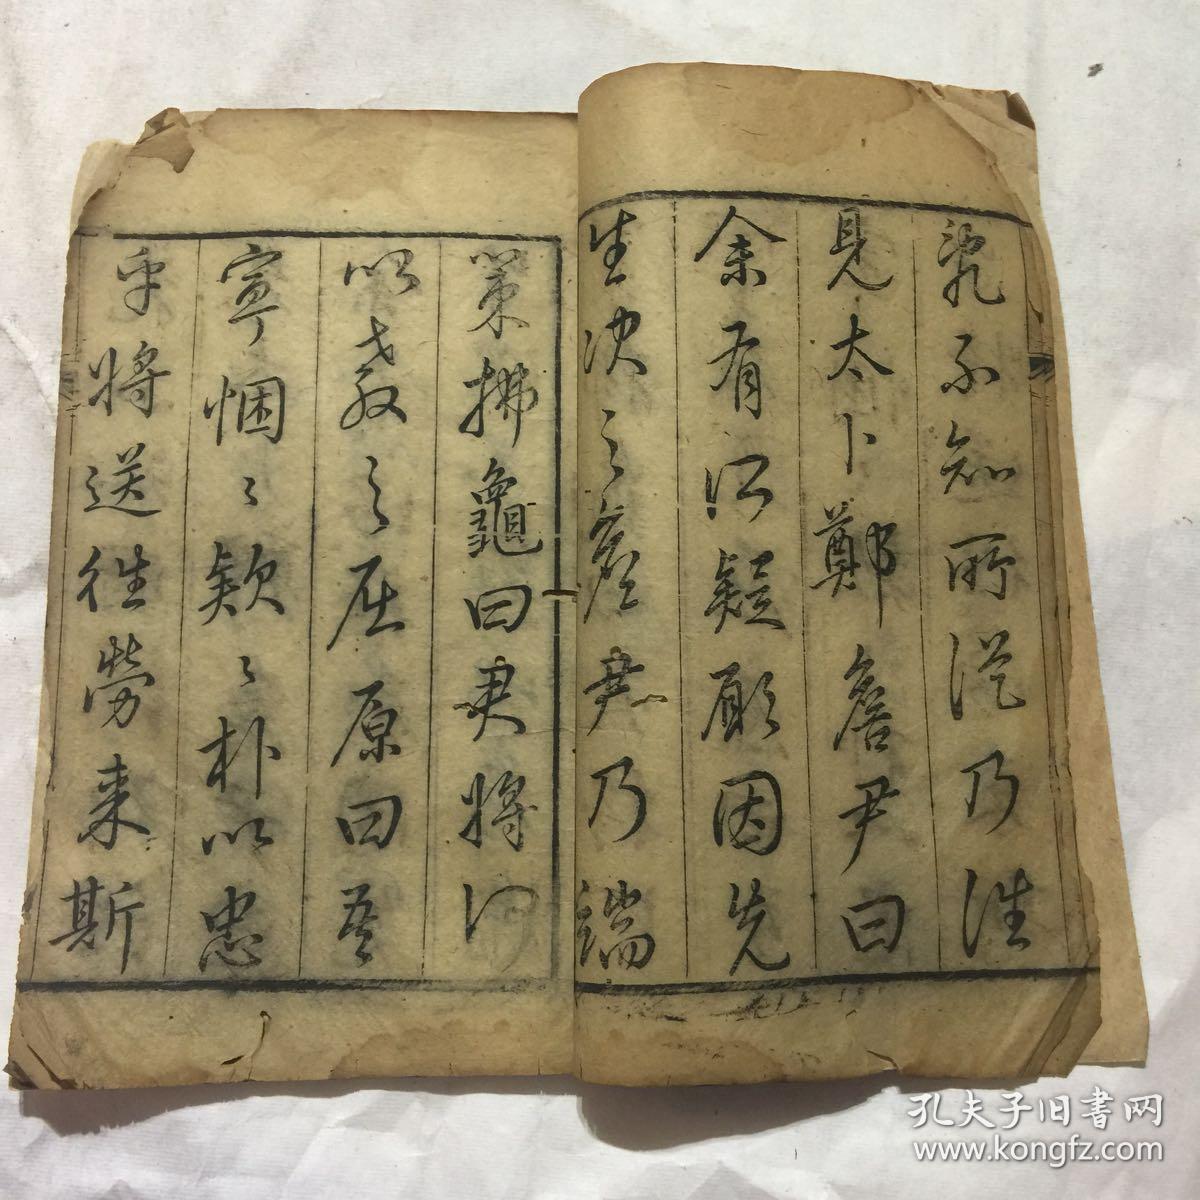 亂不知所從乃往
見太卜鄭詹尹曰
余有所疑願因先
生決之詹尹乃端
策拂龜曰君將何
以教之屈原曰吾
寧悃〻款〻朴以忠
乎將送往勞来斯
孔夫子旧書网
www.kongfz.com